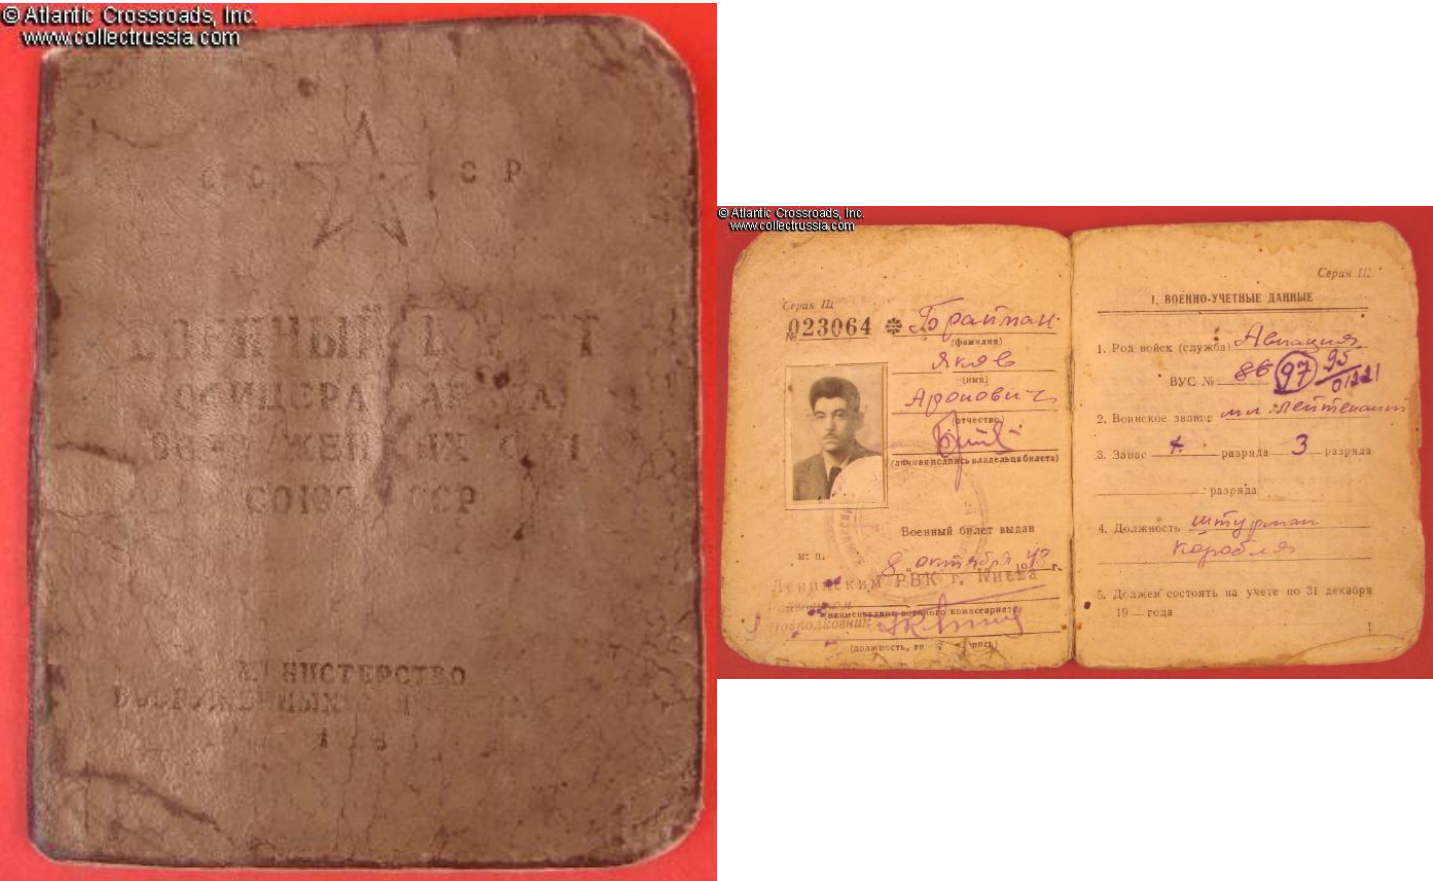 © Atlantic Crossroads, Inc.
www.collectrussia.com
С С Р
ВОЕННЫЙ
ОФИЦЕРА
СОЮЗ ССР
МИНИСТЕРСТВО
© Atlantic Crossroads, Inc.
www.collectrussia.com
Серия Щ
№ 023064
Брайман
(фамилия)
Яков
(имя)
Аронович
(отчество)
(личная подпись владельца билета)
Военный билет выдан
м. п.
8 октября 1948 г.
Ленинским РВК г. Киева
Райвоенком
(наименование военного комиссариата)
Подполковник
(должность,
Серия Щ.
I. ВОЕННО-УЧЕТНЫЕ ДАННЫЕ
1. Род войск (служба) Авиация
ВУС № 86 97 95
01221
2. Воинское звание мл. лейтенант
3. Запас разряда 3 разряда
разряда
4. Должность штурман
корабля
5. Должен состоять на учете по 31 декабря
19— года
1